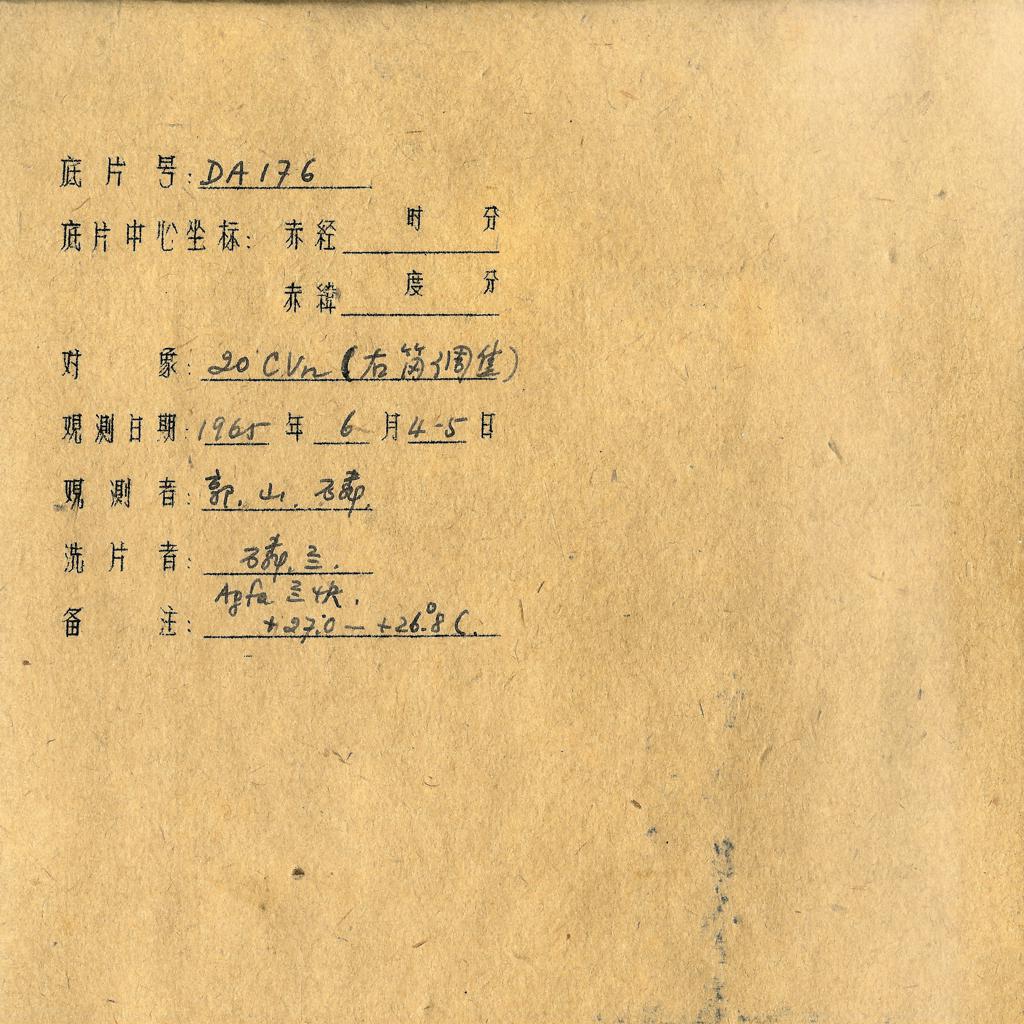 底片号: DA176
底片中心坐标: 赤经 时 分
赤纬 度 分
对象: 20 CVn (右 调焦)
观测日期: 1965年 6月 4-5日
观测者: 郭. 山.
洗片者: 兰.
Agfa 兰快.
备注: +27.0 — +26.8°C.